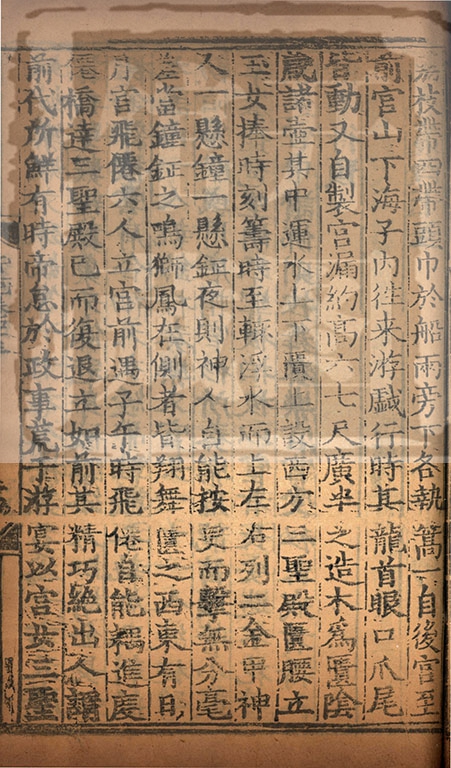 荔枝帶四帶頭巾於船兩旁下各執篙一自後宮至
前宮山下海子內往来游戱行時其龍首眼口爪尾
皆動又自製宮漏約高六七尺廣半之造木爲匱陰
藏諸壺其中運水上下匱上設西方三聖殿匱腰立
玉女捧時刻籌時至輙浮水而上左右列二金甲神
人一懸鐘一懸鉦夜則神人自能按更而擊無分毫
差當鐘鉦之鳴獅鳳在側者皆翔舞匱之西東有日
月宮飛僊六人立宮前遇子午時飛僊自能耦進度
僊橋達三聖殿已而復退立如前其精巧絶出人謂
前代所鮮有時帝怠於政事荒于游宴以宮女三聖